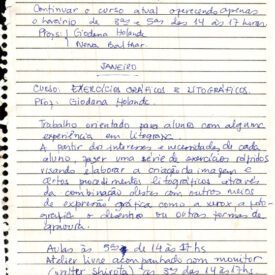 Continuar o curso atual oferecendo apenas
o horário de 3ªs e 5ªs das 14 às 17 horas.
Profs: Giodana Holanda
Nona Balthar.
JANEIRO
CURSO: EXERCÍCIOS GRÁFICOS E LITOGRÁFICOS.
Prof. Giodana Holanda
Trabalho orientado para alunos com alguma
experiência em litografia.
A partir do interesse e necessidades de cada
aluno, fazer uma série de exercícios rápidos
visando elaborar a criação da imagem e
certos procedimentos litográficos através
da combinação destes com outros meios
de expressão gráfica como a xerox, a foto-
grafia, o desenho ou outras formas de
gravura.
Aulas às 5ªs de 14 às 17hs
Atelier livre acompanhado com monitor
(Valter Shirota) às 3ªs das 14 às 17hs